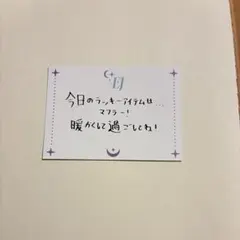 今日のラッキーアイテムは...
マフラー!
暖かくして過ごしてね!